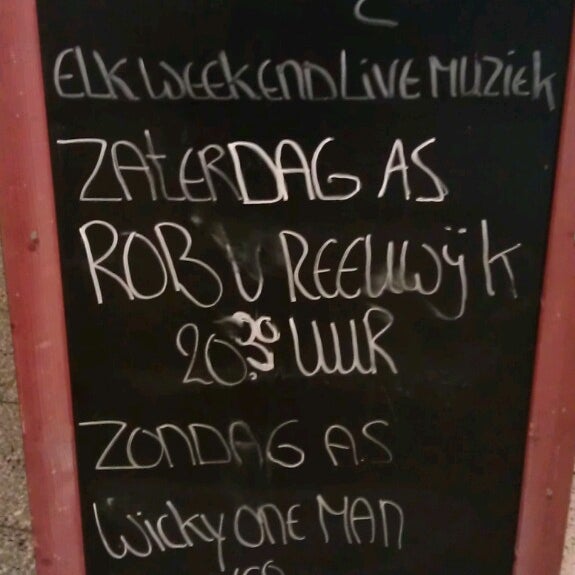 ELK WEEKEND LIVE MUZIEK
ZATERDAG AS
ROB V REEUWIJK
20.30 UUR
ZONDAG AS
WICKY ONE MAN